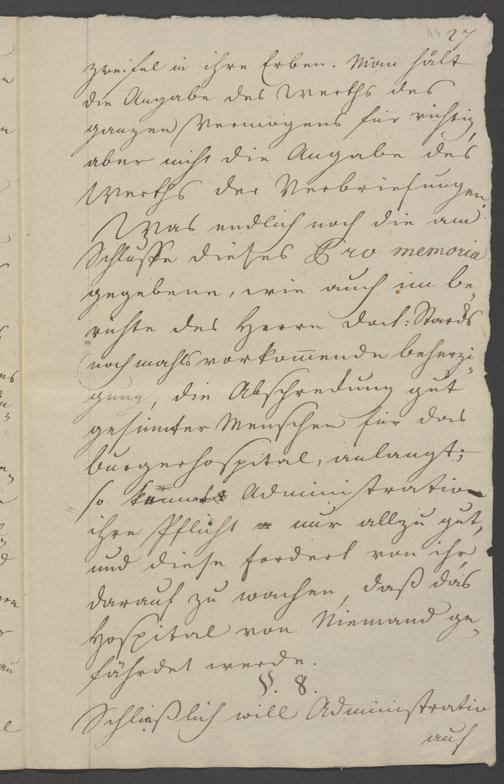 44 27
zweifel in ihre Erben. Man hält
die Angabe des Werths des
ganzen Vermögens für richtig,
aber nicht die Angabe des
Werths der Verbriefungen.
Was endlich noch die am
Schlusse dieses Pro memoria
gegebene, wie auch im be-
richte des Herrn Doct:
noch mahls vorkommende beherzi-
gung, die Abschreckung gut
gesinnter Menschen für das
burgerhospital, anlangt;
so kennet Administration
ihre Pflicht nur allzu gut,
und diese fordert von ihr
darauf zu wachen, daß das
Hospital von Niemand ge-
fährdet werde.
§. 8.
Schließlich will Administratio
auch